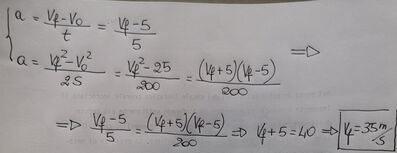 a = (Vf - V0)/t = (Vf - 5)/5
a = (Vf² - V0²)/2S = (Vf² - 25)/200 = ((Vf + 5)(Vf - 5))/200 ⇒
⇒ (Vf - 5)/5 = ((Vf + 5)(Vf - 5))/200 ⇒ Vf + 5 = 40 ⇒ Vf = 35 m/s